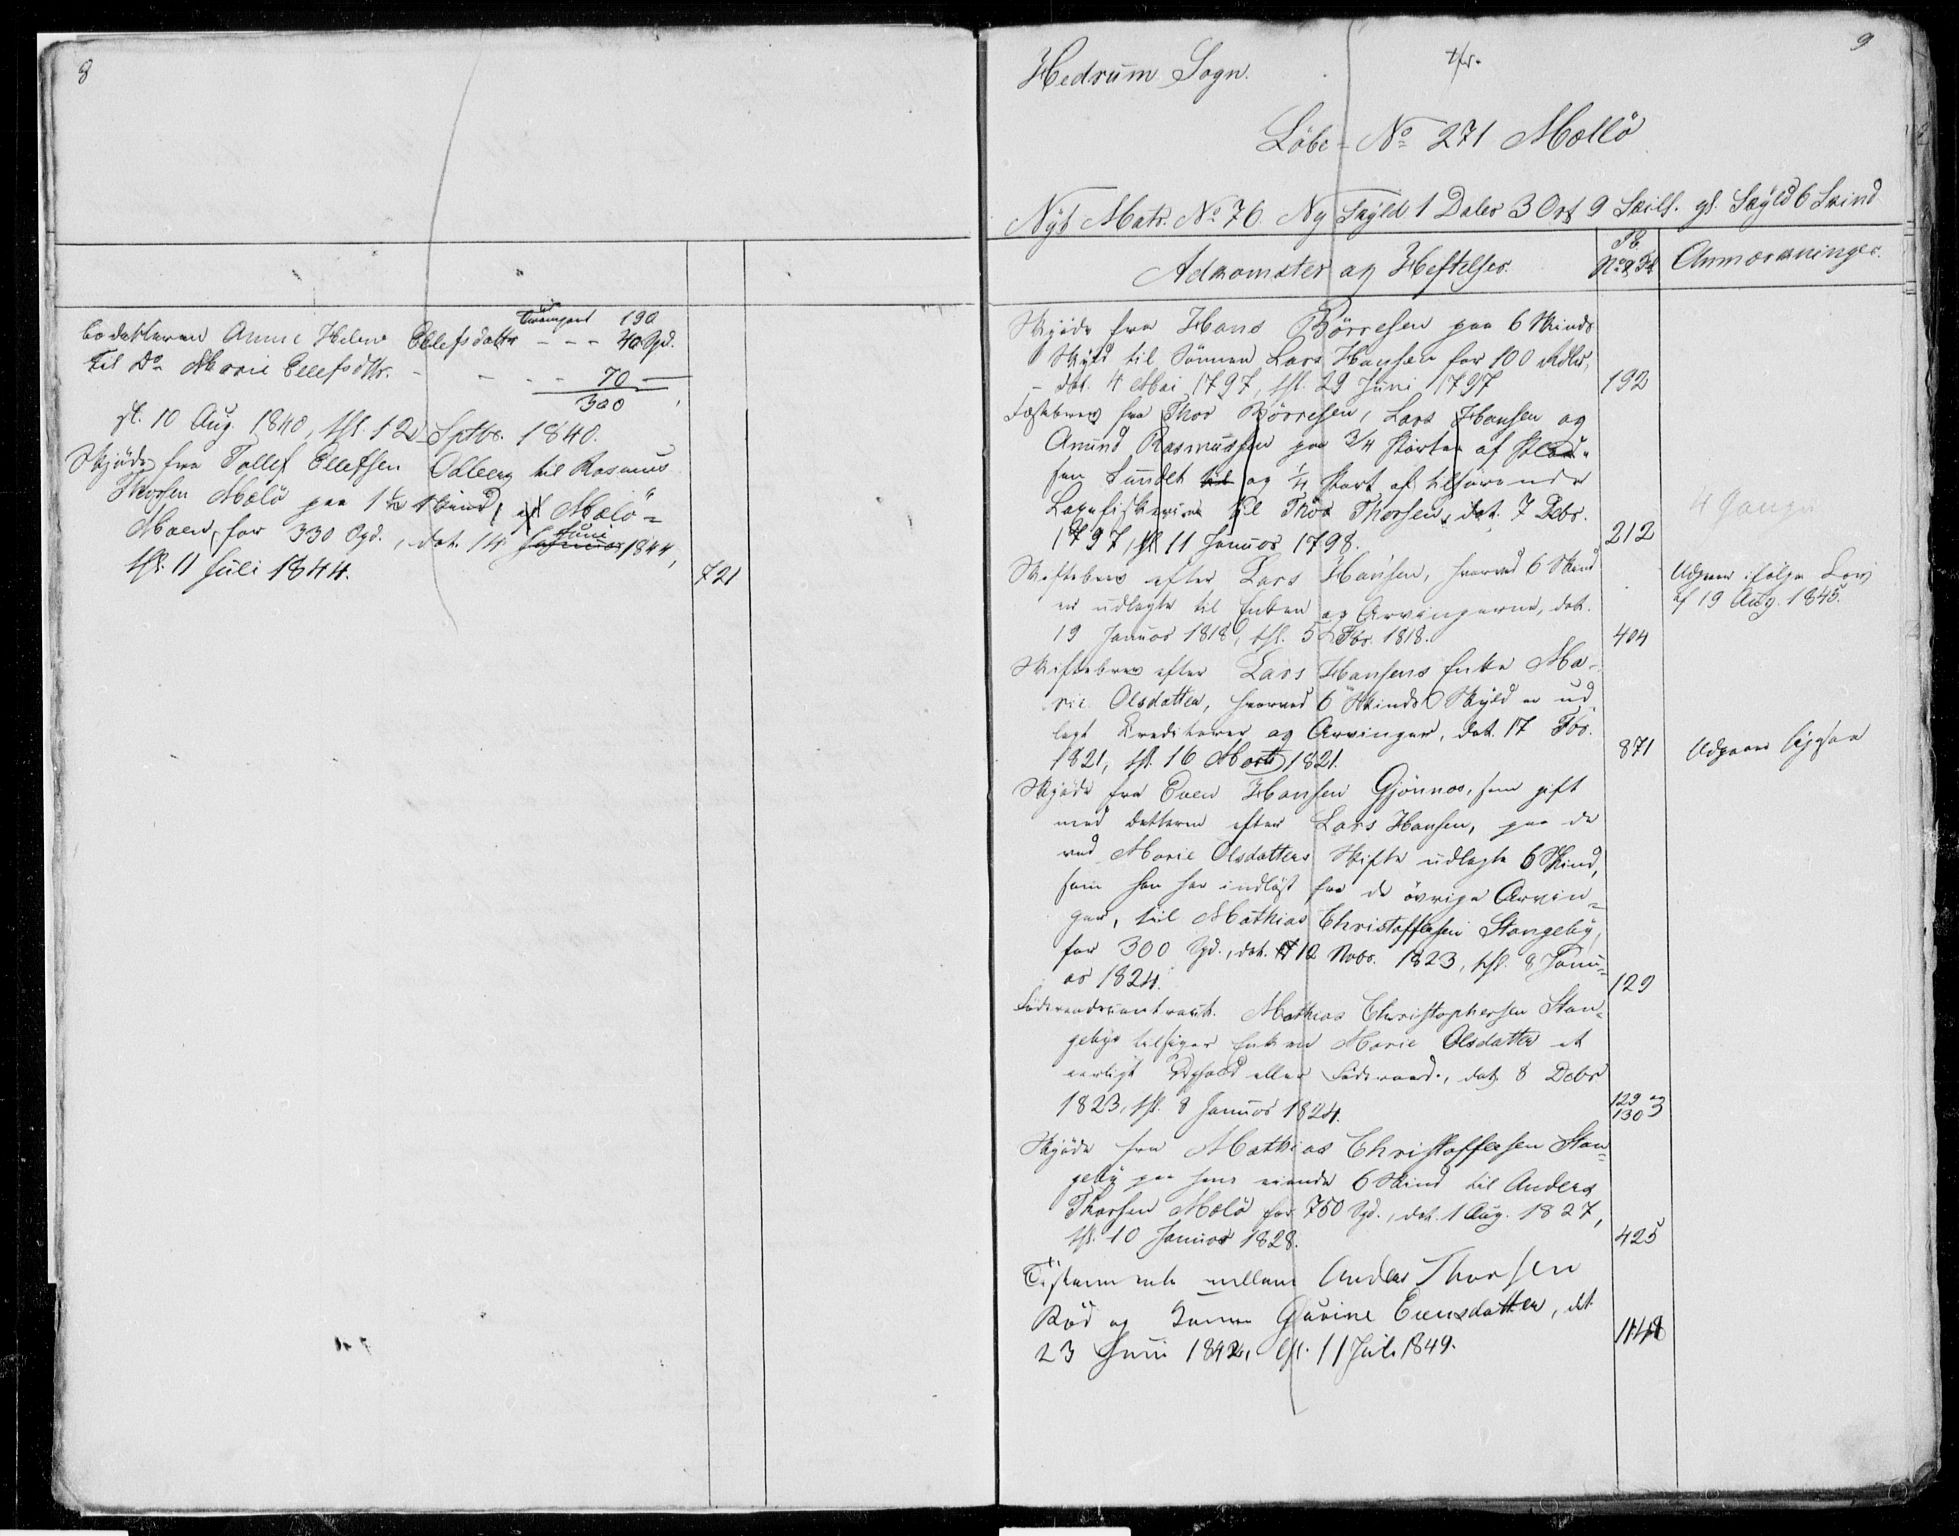 8
Transport 190
bodatteren Anne Helene Ellefsdatter - - - 40 Spd.
til Do Marie Ellefsdttr. - - - - 70 -
300
st. 10 Aug. 1840, thl. 12 Sptbr. 1840.
Skjøde fra Tollef Ellefsen Odberg til Rasmus
Thorsen Mælö paa 1 1/2 Skind, af Mælö-
Moen, for 330 Spd., dat. 14 Januar Juni 1844,
thl. 11 Juli 1844.
721
9
Hedrum Sogn.
Löbe-No 271 Mællö
Nyt Matr. No 76 Ny Skyld 1 Daler 3 Ort 9 Skill. gl. Skyld 6 Skind
Adkomster og Heftelser.
Anmærkninger.
Skjøde fra Hans Börresen paa 6 Skinds
Skyld til Sönnen Lars Hansen for 100 Rdlr,
- dat. 4 Mai 1797, thl. 29 Juni 1797
192
Fæstebrev fra Thor Börresen, Lars Hansen og
Amund Rasmussen paa 3/4 Parter af
Sundet og 1/4 Part af tilhørende
Laxefiskerie til Thor Thorsen, dat. 7 Debr.
1797, thl 11 Januar 1798.
212
4 Gange
Skiftebrev efter Lars Hansen, hvorved 6 Skind
er udlagte til Enken og Arvingerne, dat.
19 Januar 1818, thl. 5 Fbr. 1818.
404
Udgaaer ifølge Lov
af 19 Aug. 1845.
Skiftebrev efter Lars Hansens Enke Ma-
rie Olsdatter, hvorved 6 Skinds Skyld er ud-
lagt Creditorer og Arvinger, dat. 17 Fbr.
1821, thl. 16 Marts 1821.
871
Udgaaer ligesaa
Skjøde fra Even Hansen Gjönnes, som gift
med Datteren efter Lars Hansen, paa de
ved Marie Olsdatters Skifte udlagte 6 Skind,
som han har indløst fra de övrige Arvin-
ger, til Mathias Christoffersen Stangeby,
for 300 Spd., dat. 12 Novbr. 1823, thl. 8 Janu-
ar 1824.
129
Föderaadscontract. Mathias Christophersen Stan-
geby tilsiger Enken Marie Olsdatter et
aarligt Ophold eller Föderaad, dat. 8 Debr
1823, thl. 8 Januar 1824.
129 og
130
Skjøde fra Mathias Christoffersen Stan-
geby paa hans eiende 6 Skind til Anders
Thorsen Mælö for 750 Spd., dat. 1 Aug. 1827,
thl. 10 Januar 1828.
425
Testamente mellem Anders Thorsen
Röd og Gurine Evensdatter, dat.
23 Juni 1842, thl. 11 Juli 1849.